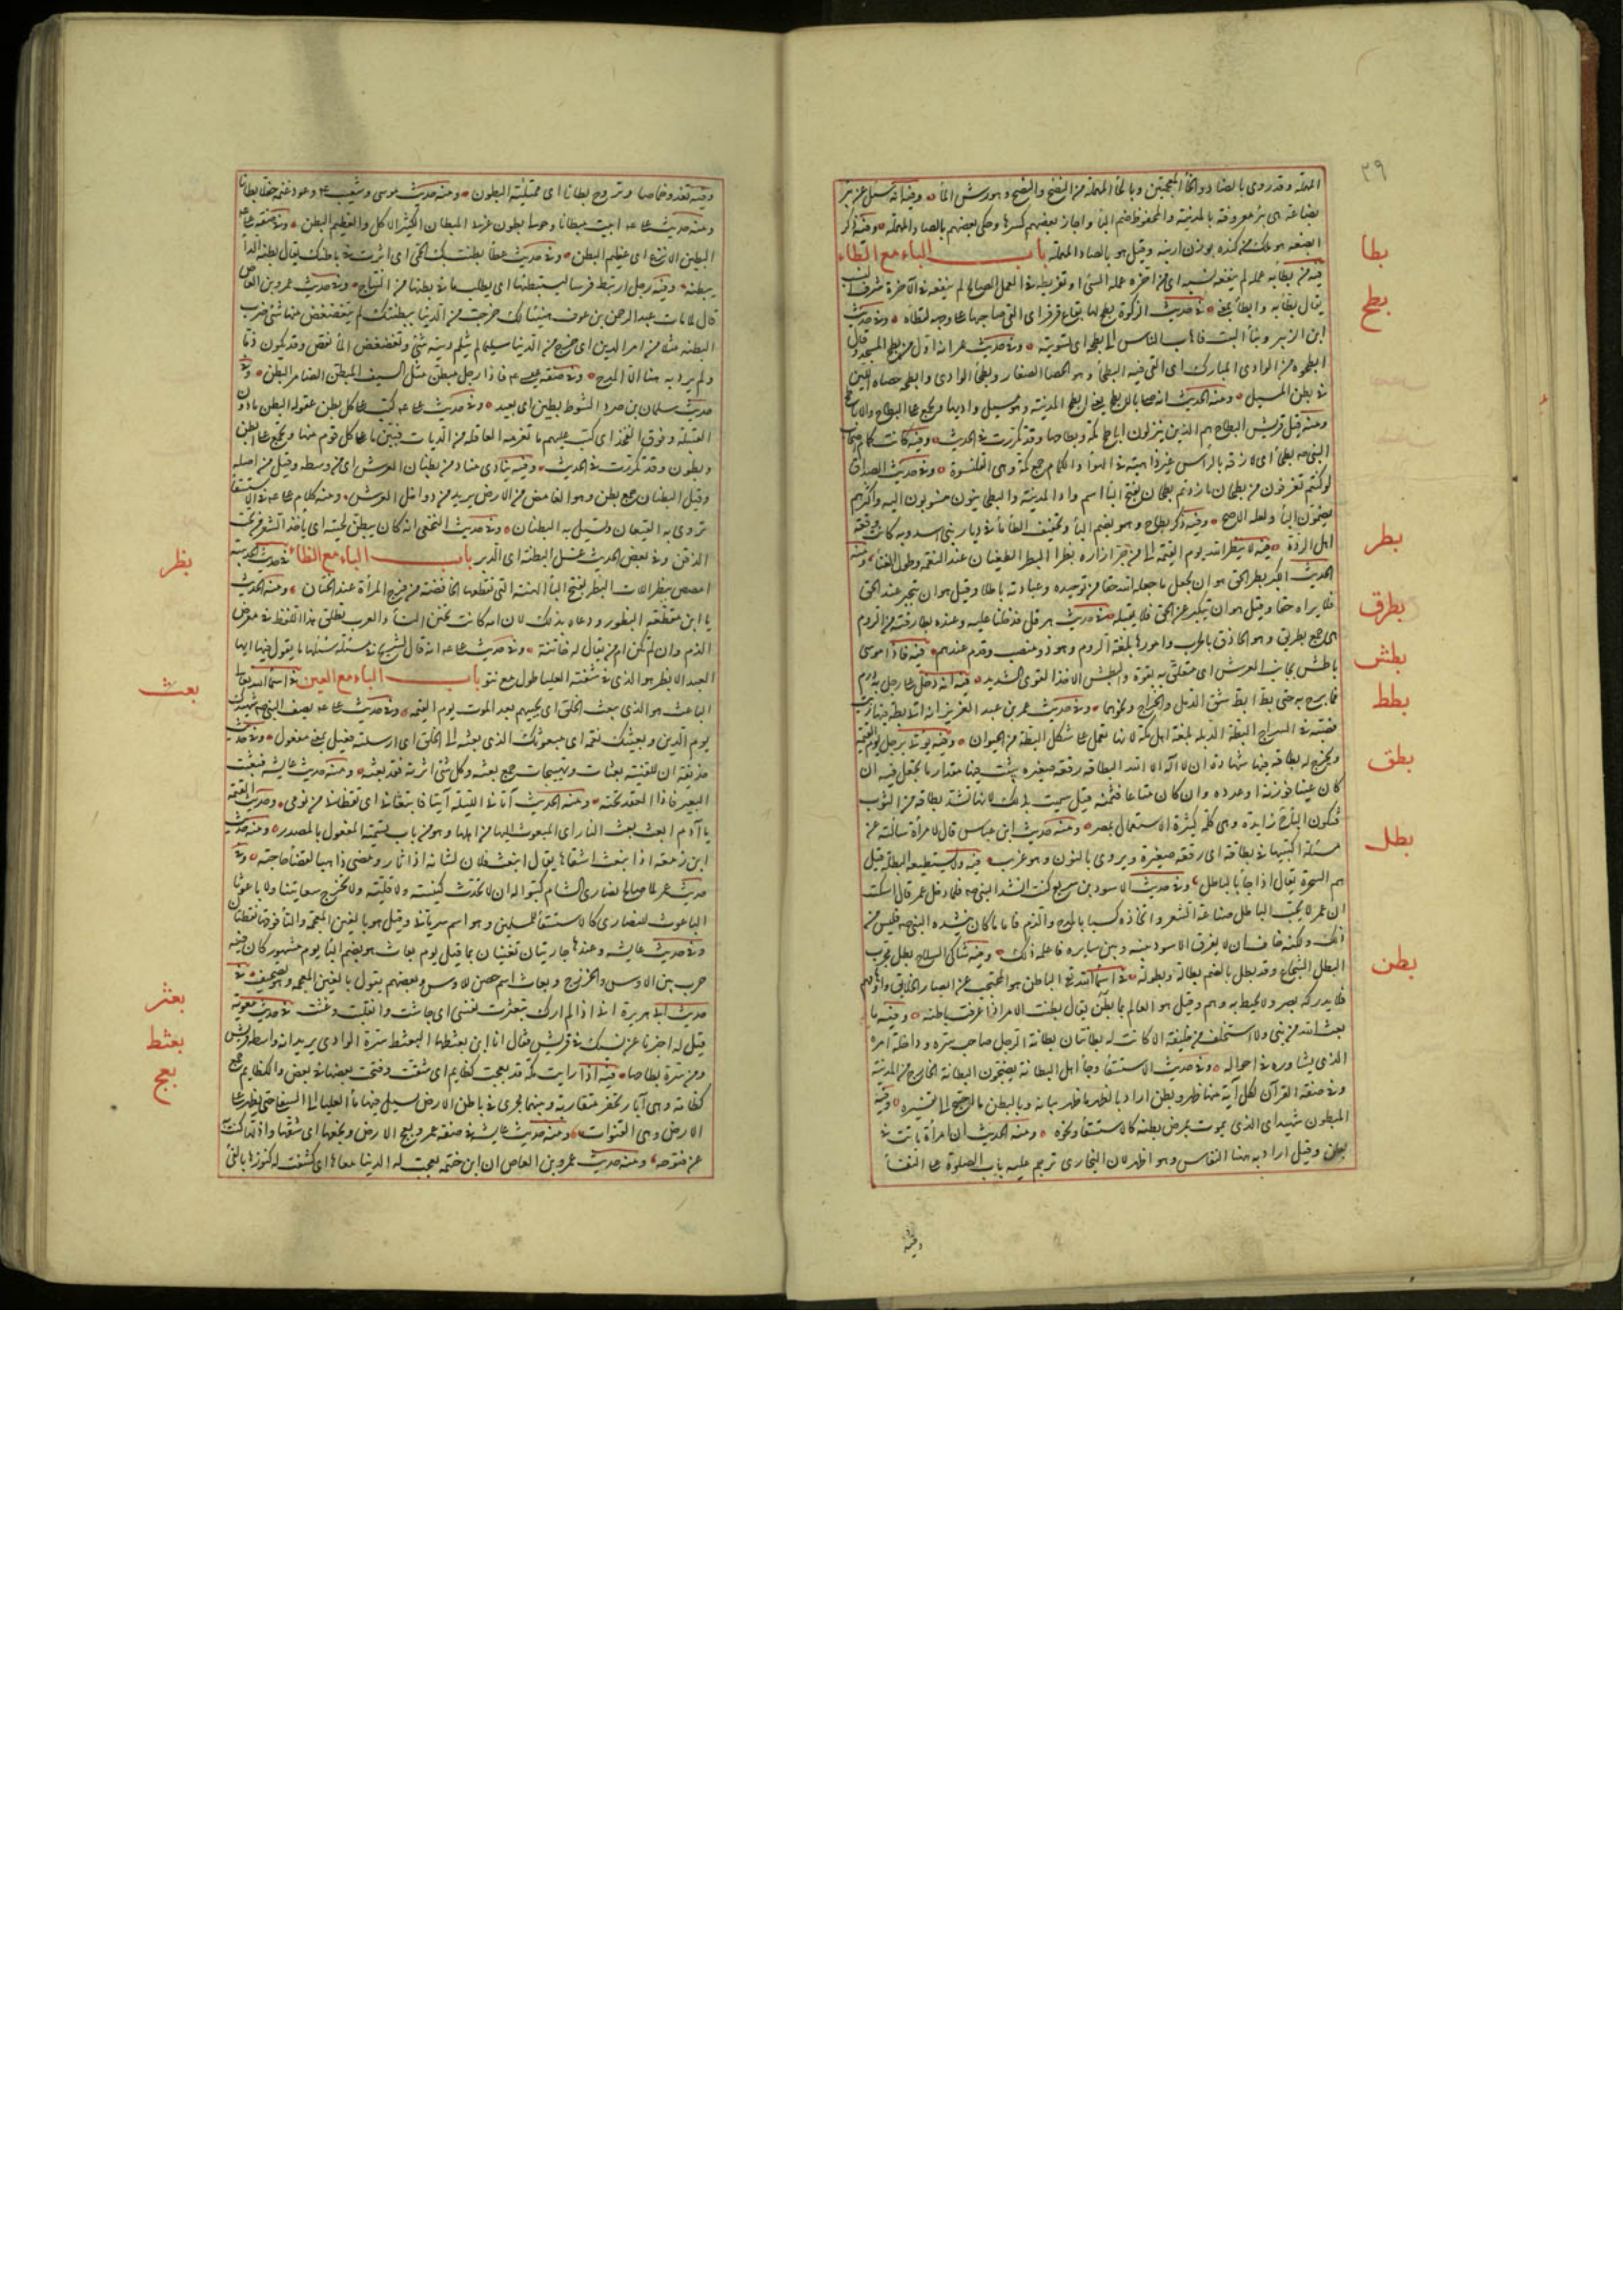 ٣٩
المهملة وقد روى بالضاد والخاء المعجمتين وبالحاء المهملة من النضخ والنضح وهو رش الماء وفيه انه سئل عن بئر
بضاعة هى بئر معروفة بالمدينة والمحفوظ ضم الباء واجاز بعضهم كسرها وحكى بعضهم بالصاد المهملة وفيه ذكر
ابضعه هو ملك من كنده بوزن ارنبه وقيل هو بالصاد المهملة باب الباء مع الطاء
بطا
فيه من بطّأ به عمله لم ينفعه نسبه اى من اخره عمله السئ او تفريطه فى العمل الصالح لم ينفعه فى الآخرة شرف النسب
يقال بطّأ به وابطأ بمعنى فى حديث الزكوة بطح لها بقاع قرقر اى القى صاحبها على وجهه لتطاه وفى حديث
بطح
ابن الزبير وبناء البيت فاهاب بالناس الى بطحه اى تسويته وفى حديث عمر انه اول من بطح المسجد وقال
ابطحوه من الوادى المبارك اى القى فيه البطحاء وهو الحصا الصغار وبطحاء الوادى وابطحه حصاه اللين
فى بطن المسيل ومنه الحديث انه صلى بالابطح يعنى ابطح المدينة وهو مسيل واديها ويجمع على البطاح والاباطح
ومنه قيل قريش البطاح هم الذين ينزلون اباطح مكة وبطاحها وقد تكررت فى الحديث وفيه كانت كمام اصحاب
النبى بطحاء اى لازقة بالراس غير ذاهبة فى الهواء والكمام جمع كمة وهى القلنسوة وفى حديث الصداق
لو كنتم تغرفون من بطحان ما زدتم بطحان بفتح الباء اسم واد المدينة والبطحانيون منسوبون اليه واكثرهم
يضمون الباء ولعله الاصح وفيه ذكر بطاح وهو بضم الباء وتخفيف الطاء ماء فى ديار بنى اسد وبه كانت وقعة
اهل الردة فيه لا ينظر الله يوم القيمة الى من جر ازاره بطرا البطر الطغيان عند النعمة وطول الغناء ومنه
بطر
الحديث الكبر بطر الحق هو ان يجعل ما جعله الله حقا من توحيده وعبادته باطلا وقيل هو ان يتجبر عند الحق
فلا يراه حقا وقيل هو ان يتكبر عن الحق فلا يقبله فى حديث هرقل فدخلنا عليه وعنده بطارقته من الروم
بطرق
هى جمع بطريق وهو الحاذق بالحرب وامورها بلغة الروم وهو ذو منصب وتقدم عندهم فيه فاذا موسى
بطش
باطش بجانب العرش اى متعلق به بقوة والبطش الاخذ القوى الشديد فيه انه دخل على رجل به ورم
بطط
فما برح به حتى بط البط شق الدمل والخراج ونحوهما وفى حديث عمر بن عبد العزيز انه اتى بطة فيها زيت
فصبه فى السراج البطة الدبة بلغة اهل مكة لانها تعمل على شكل البطة من الحيوان وفيه يوتى برجل يوم القيمة
بطق
ويخرج له بطاقة فيها شهادة ان لا اله الا الله البطاقة رقعة صغيره يثبت فيها مقدار ما يجعل فيه ان
كان عينا فوزنه او عدده وان كان متاعا فثمنه قيل سميت بذلك لانها تشد بطاقة من الثوب
فتكون الباء زايدة وهى كلمة كثيرة الاستعمال بمصر ومنه حديث ابن عباس قال لامرأة سألته عن
مسئلة اكتبيها فى بطاقة اى رقعة صغيرة ويروى بالنون وهو غريب فيه ولا يستطيعه البطلة قيل
بطل
هم السحرة يقال ابطل اذا جاء بالباطل وفى حديث الاسود بن سريع كنت انشد النبى فلما دخل عمر قال اسكت
ان عمر لا يحب الباطل صناعة الشعر واتخاذه كسبا بالمدح والذم فاما ما كان ينشده النبى فليس من
ذلك ولكنه خاف ان لا يفرق الاسود بينه وبين سايره فاعلمه ذلك وفيه شاكى السلاح بطل مجرب
البطل الشجاع وقد بطل بالضم بطالة وبطولة فى اسماء الله تع الباطن هو المحتجب عن ابصار الخلايق واوهامهم
بطن
فلا يدركه بصر ولا يحيط به وهم وقيل هو العالم بما بطن يقال بطنت الامر اذا عرفت باطنه وفيه ما
بعث الله من نبى ولا استخلف من خليفة الا كانت له بطانتان بطانة الرجل صاحب سره وداخلة امره
الذى يشاوره فى احواله وفى حديث الاستسقاء وجاء اهل البطانة يضجون البطانة الخارج من المدينة
وفى صفة القرآن لكل آية منها ظهر وبطن اراد بالظهر ما ظهر بيانه وبالبطن ما احتيج الى تفسيره وفيه
المبطون شهيد اى الذى يموت بمرض بطنه كالاستسقاء ونحوه ومنه الحديث ان امرأة ماتت فى
بطن وقيل اراد به هنا النفاس وهو اظهر لان البخارى ترجم عليه باب الصلوة على النفساء
وفيه
وفيه تغدو خماصا وتروح بطانا اى ممتلئة البطون ومنه حديث موسى وشعيب وعود غنمه حفلا بطانا
ومنه حديث على ابيت مبطانا وحولى بطون غرثى المبطان الكثير الاكل والعظيم البطن وفى صفة على
البطين الانزع اى عظيم البطن وفى حديث عطاء بطنت بك الحمى اى اثرت فى باطنك يقال بطنه الداء
يبطنه وفيه رجل ارتبط فرسا ليستبطنها اى يطلب ما فى بطنها من النتاج وفى حديث عمرو بن العاص
قال لما مات عبد الرحمن بن عوف هنيئا لك خرجت من الدنيا ببطنتك لم يتغضغض منها شئ ضرب
البطنة مثلا من امر الدين اى خرج من الدنيا سليما لم يثلم دينه شئ وتغضغض الماء نقص وقد يكون ذما
ولم يرد به هنا الا المدح وفى صفة عيسى فاذا رجل مبطن مثل السيف المبطن الضامر البطن وفى
حديث سليمان بن صرد الشوط بطين اى بعيد وفى حديث على كتب على كل بطن عقوله البطن ما دون
القبيلة وفوق الفخذ اى كتب عليهم ما تغرمه العاقلة من الديات فبين ما على كل قوم منها ويجمع على ابطن
وبطون وقد تكررت فى الحديث وفيه ينادى مناد من بطنان العرش اى من وسطه وقيل من اصله
وقيل البطنان جمع بطن وهو الغامض من الارض يريد من دواخل العرش ومنه كلام على فى الاستسقاء
تروى به القيعان وتسيل به البطنان وفى حديث النخعى انه كان يبطن لحيته اى ياخذ الشعر من تحت
الذقن وفى بعض الحديث غسل البطنة اى الدبر باب الباء مع الظاء فى حديث الحديبية
بظر
امصص ببظر اللات البظر بفتح الباء الهنة التى تقطعها الخافضة من فرج المرأة عند الختان ومنه الحديث
يا ابن مقطعة البظور ودعاه بذلك لان امه كانت تختن النساء والعرب تطلق هذا اللفظ فى معرض
الذم وان لم تكن ام من يقال له خاتنة وفى حديث على انه قال لشريح فى مسئلة سئلها ما تقول فيها ايها
العبد الابظر هو الذى فى شفته العليا طول مع نتو باب الباء مع العين فى اسماء الله تعالى
بعث
الباعث هو الذى يبعث الخلق اى يحييهم بعد الموت يوم القيمة وفى حديث على يصف النبى شهيدك
يوم الدين وبعيثك نعمة اى مبعوثك الذى بعثته الى الخلق اى ارسلته فعيل بمعنى مفعول وفى حديث
حذيفة ان للفتنة بعثات وتهييجات جمع بعثة وكل شئ اثرته فقد بعثته ومنه حديث عايشة فبعثت
البعير فاذا العقد تحته ومنه الحديث آتانى الليلة آتيان فابتعثانى اى ايقظانى من نومى وحديث القيمة
يا آدم ابعث بعث النار اى المبعوث اليها من اهلها وهو من باب تسمية المفعول بالمصدر ومنه حديث
ابن زمعة اذا انبعث اشقاها يقال انبعث فلان لشانه اذا ثار ومضى ذاهبا لقضاء حاجته وفى
حديث عمر لما صالح نصارى الشام كتبوا له ان لا نحدث كنيسة ولا قلية ولا نخرج سعانينا ولا باعوثا
الباعوث للنصارى كالاستسقاء للمسلمين وهو اسم سريانى وقيل هو بالغين المعجمة والتاء فوقها نقطتان
وفى حديث عايشة وعندها جاريتان تغنيان بما قيل يوم بعاث هو بضم الباء يوم مشهور كان فيه
حرب بين الاوس والخزرج وبعاث اسم حصن للاوس وبعضهم يقول بالغين المعجمة وهو تصحيف فى
بعثر
حديث ابى هريرة انى اذا لم ارك تبعثرت نفسى اى جاشت وانقلبت وغثت فى حديث معوية
بعثط
قيل له اخبرنا عن نسبك فى قريش فقال انا ابن بعثطها البعثط سرة الوادى يريد انه واسطة قريش
ومن سرة بطاحها فيه اذا رايت مكة قد بعجت كظايم اى شقت وفتحت بعضها فى بعض والكظايم جمع
بعج
كظامة وهى آبار تحفر متقاربة وبينها مجرى فى باطن الارض يسيل فيها ماء العليا الى السفلى حتى يظهر على
الارض وهى القنوات ومنه حديث عايشة فى صفة عمر وبعج الارض وبخعها اى شقها واذلها كنت
عن فتوحه ومنه حديث عمرو بن العاص ان ابن حنتمة بعجت له الدنيا معاها اى كشفت له كنوزها بالفئ